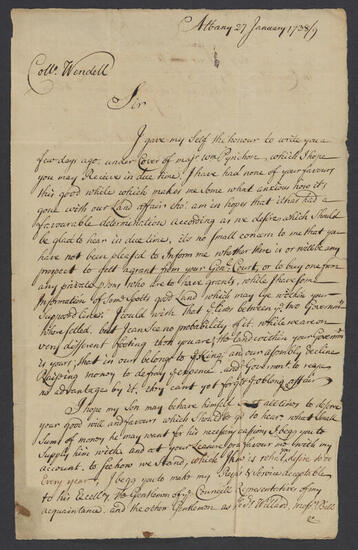 Albany 27 January 1738/9
Collo. Wendell
Sir
I gave my Self the honour to write you a
few days ago: under Cover of majr Wm Pynchon, which I hope
you may Recieve in due time, I have had none of your favours
this good while which makes me Some what anxious how it's
gone with our Land affair tho' am in hopes that it has had a
favourable determination according as we desire which Should
be glad to hear in due time, it's no Small concern to me that you
have not been pleased to Inform me whether there is or will be any
prospect to gett a grant from your Genl Court, or to buy one from
any private persons who are to have grants, while I have Some
Information of Some Lotts good Land which may lye within your
Supposed Lines. I could wish that ye Lines between ye two Governmts
where Setled, but I can See no probability of it, while we are on
very different footing than you are; the land within your Governmt
is yours, that in our belongs to ye King, and our assembly decline
Raissing money to defray ye charge, and Governmt. to reap
no advantage by it, they can't yet forget oblong affair
I hope my Son may behave himself att all times to deserve
your good will and favours which Should be go to hear, what Small
Sums of money he may want for his necessary cassion I begg you to
Supply him with and at your Leasure pray favour me with my
account, to See how we Stand, which desire to be
Every year, I begg you to make my Respts & Service acceptable
to his Excelly. the Gentlemen of ye Councill Representatives of my
acquaintance, and the other Gentlemen as Willard,
&c